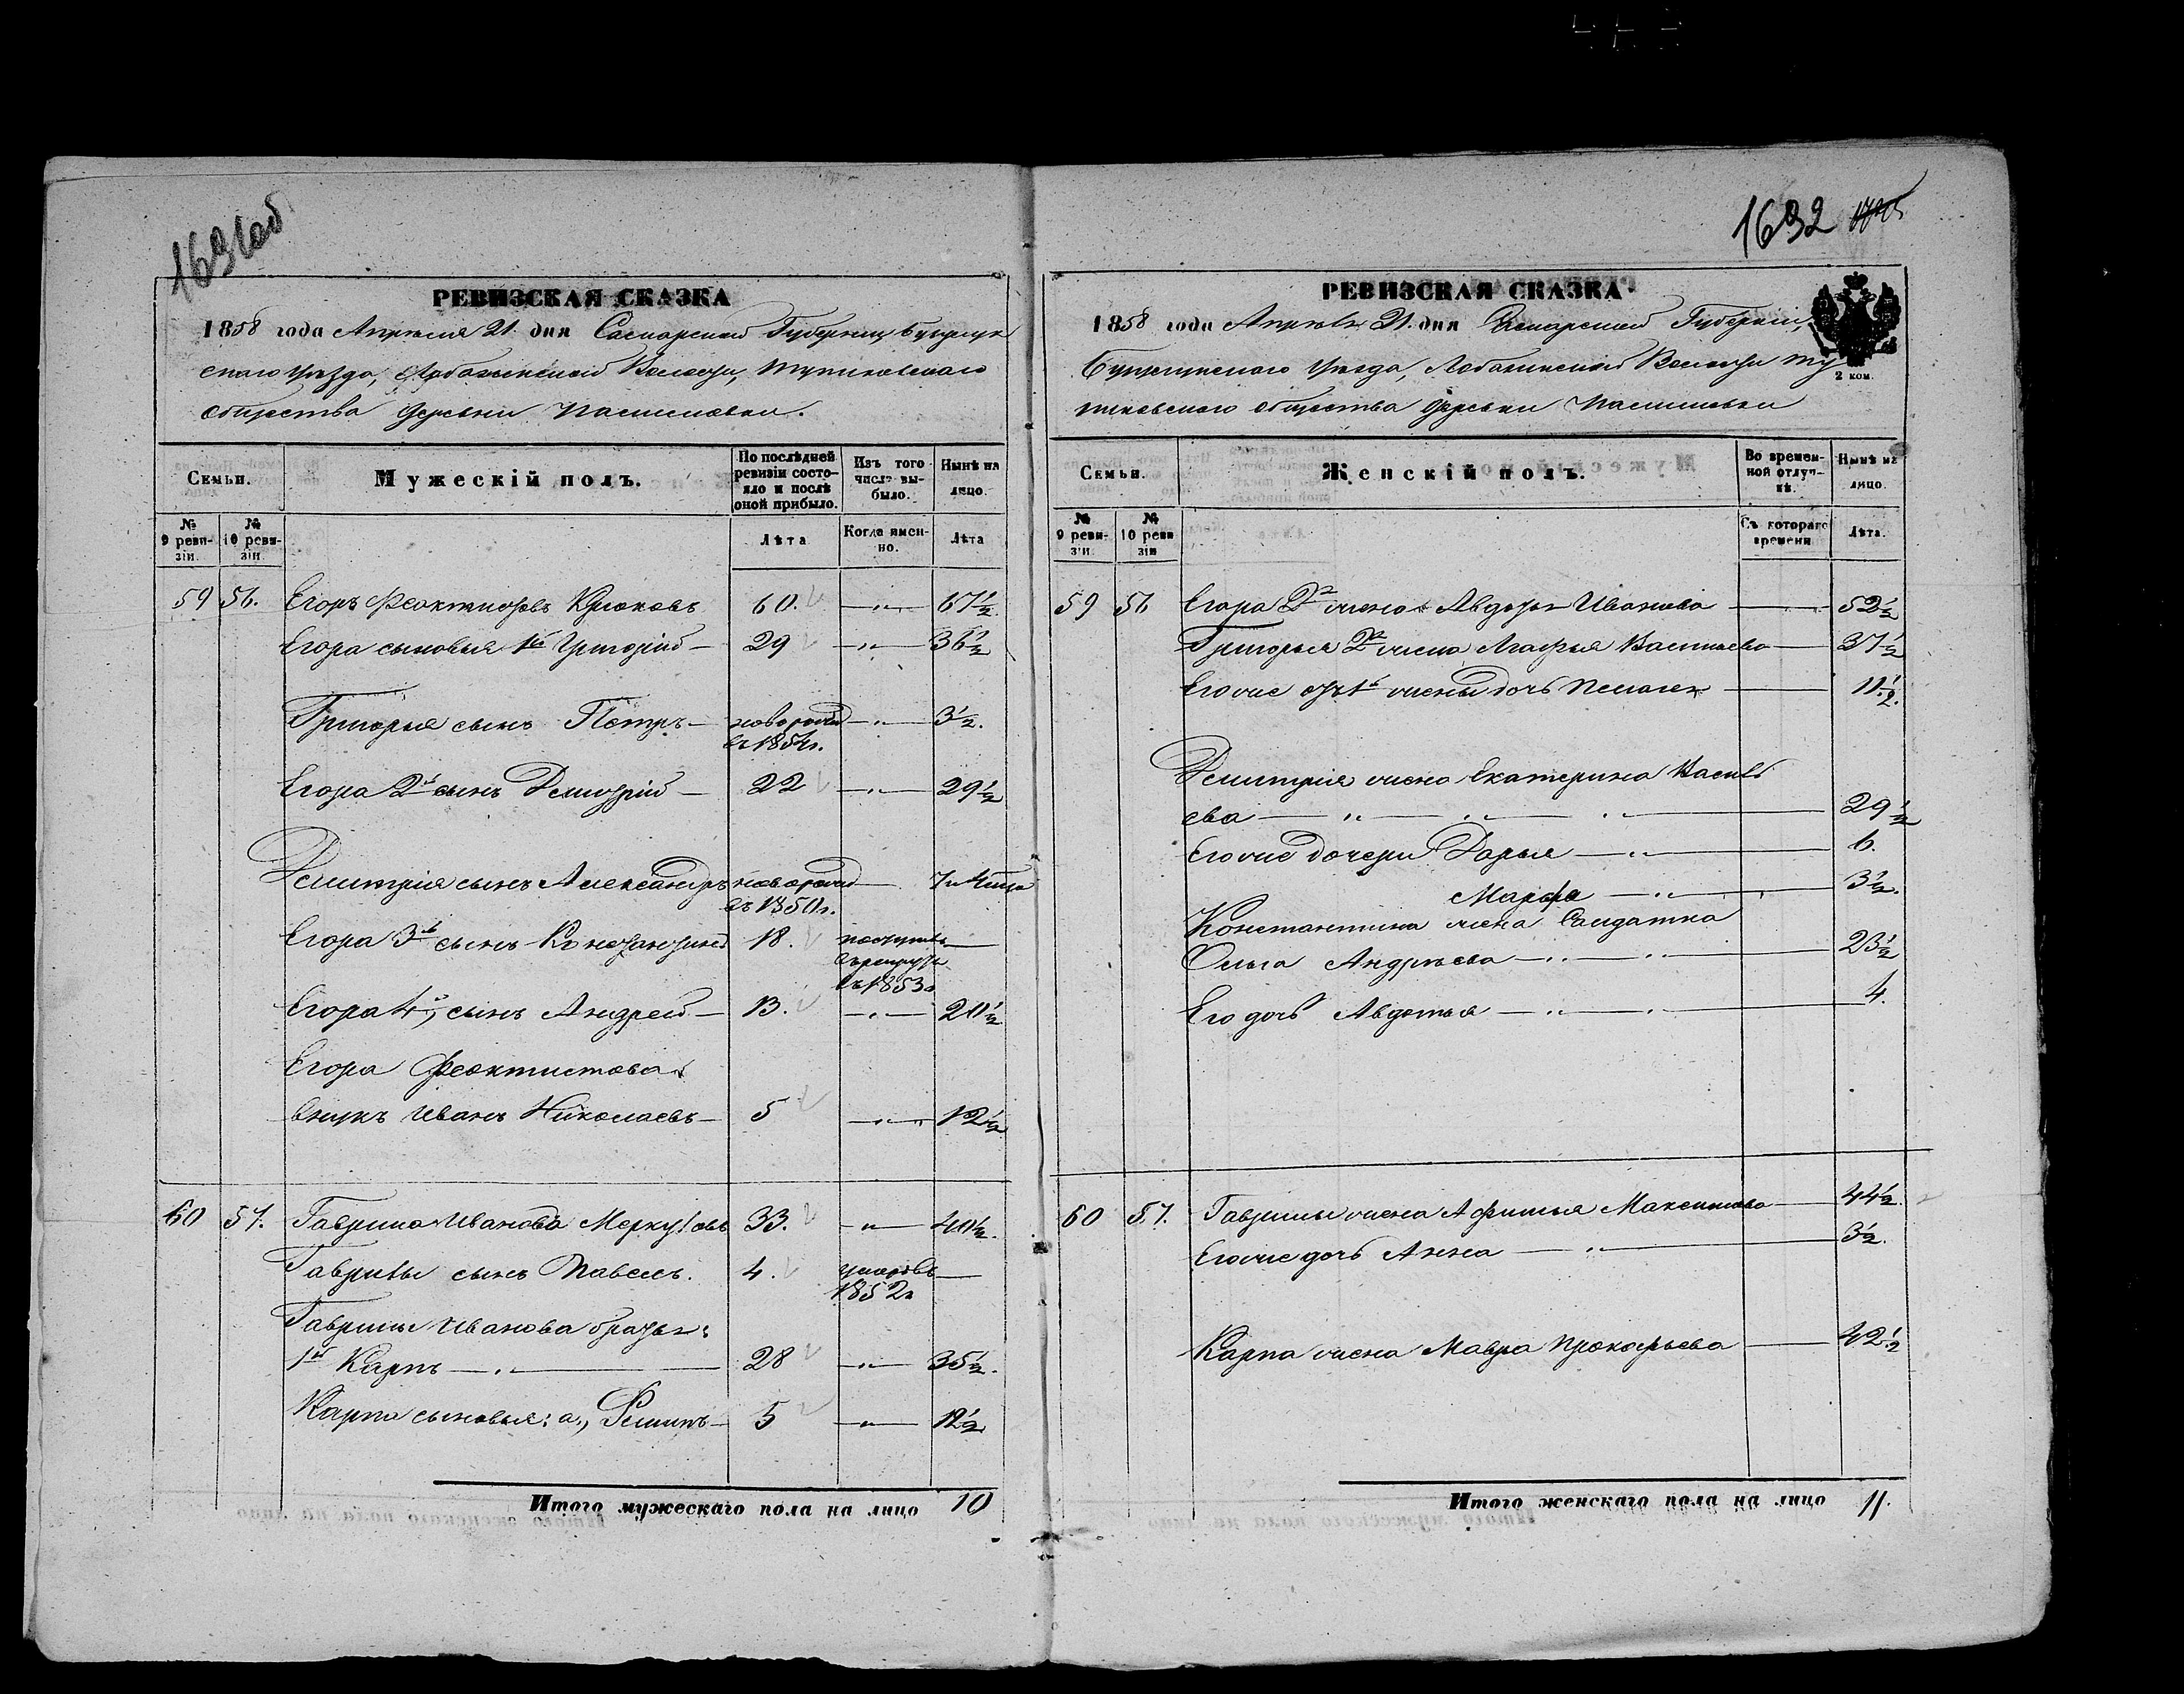 1691 об
РЕВИЗСКАЯ СКАЗКА
1858 года Апрѣля 21. дня Самарской Губерніи Бузулук
скаго Уѣзда, Лобазинской Волости,
общества Деревни
Семьи.
Мужескій полъ.
По послѣдней ревизіи состояло и послѣ оной прибыло.
Изъ того числа выбыло.
Нынѣ на лицо.
№ 9 ревизіи.
№ 10 ревизіи.
Лѣта
Когда именно.
Лѣта
59 56. Егоръ Феоктистовъ Крюковъ 60. —„— 67½
Егора сыновья 1й Григорій — 29 —„— 36½
Григорья сынъ Петръ — новорожд —„— 3½.
въ 1854г.
Егора 2й сынъ Дмитрій — 22 —„— 29½
Дмитрія сынъ Александръ новорожд — 7 и
въ 1850г.
Егора 3й сынъ Константинъ 18. поступилъ —
въ рекруты
въ 1853г
Егора 4й, сынъ Андрей — 13. —„— 20½
Егора Феоктистова
внукъ Иванъ Николаевъ — 5 —„— 12½
60 57. Гаврила Ивановъ Меркуловъ 33. —„— 40½.
Гаврилы сынъ Павелъ. 4. умеръ въ —
1852г
Гаврилы Иванова братья:
1й Карпъ —„— 28 —„— 35½.
Карпа сыновья: а., Филипъ — 5 —„— 12½
Итого мужескаго пола на лицо 10
1692
РЕВИЗСКАЯ СКАЗКА
1858 года Апрѣля 21. дня Самарской Губерніи,
Бузулукскаго Уѣзда, Лобазинской Волости
общества Деревни
2 коп.
Семьи.
Женскій полъ.
Во временной отлучкѣ.
Нынѣ на лицо.
№ 9 ревизіи.
№ 10 ревизіи
Съ котораго времени
Лѣта.
59 56 Егора 2я жена Авдотья Иванова — 52½
Григорья 2я жена Агафья Васильева — 37½
Его же отъ 1й жены дочь Пелагея — 11½.
Дмитрія жена Екатерина Василь
ева —„—„—„— 29½
Его же дочери Дарья —„— 6.
Марфа —„— 3½.
Константина жена Салдатка
Ольга Андрѣева —„—„— 23½
Его дочь Авдотья —„—„— 4.
60 57. Гаврилы жена Афимья Максимова — 44½.
Его же дочь Анна —„— 3½.
Карпа жена Мавра Прокофьева — 42½
Итого женскаго пола на лицо 11.